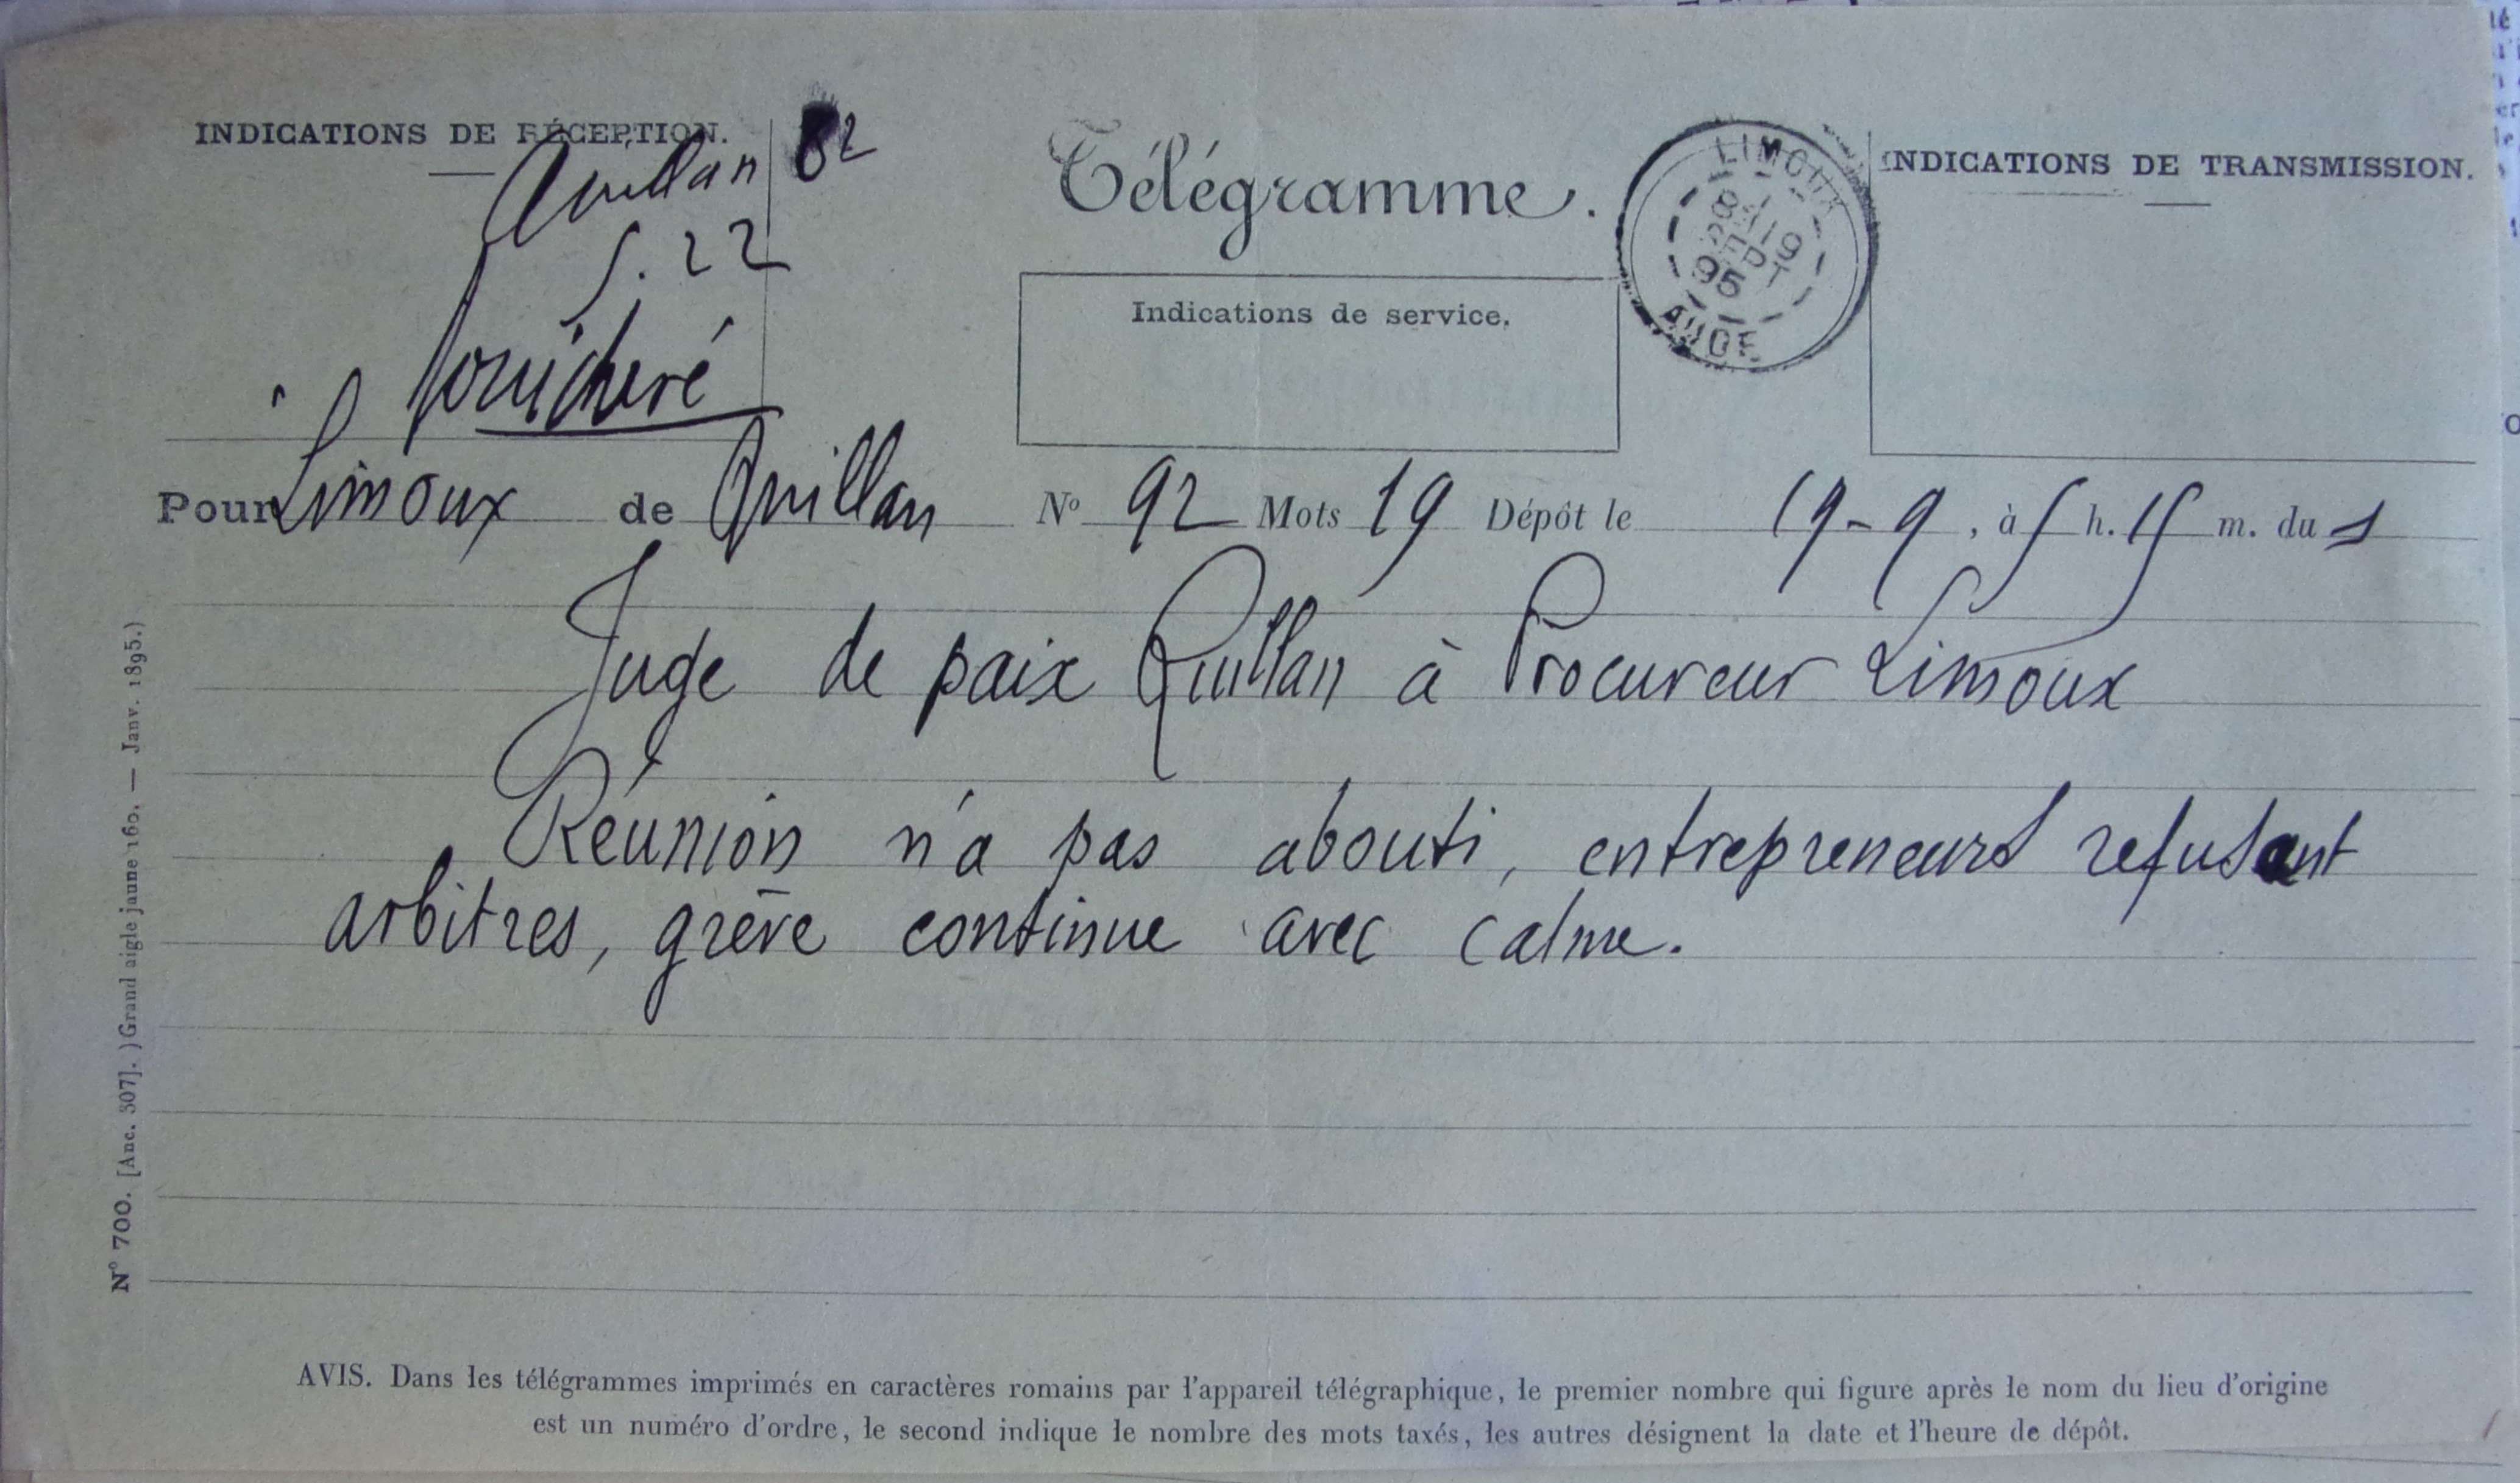 INDICATIONS DE RÉCEPTION.
Quillan 82
5.22
Télégramme.
Indications de service.
LIMOUX
8 19
SEPT
95
AUDE
INDICATIONS DE TRANSMISSION.
Pour Limoux de Quillan N° 92 Mots 19 Dépôt le 19-9, à 5 h. 15 m. du s
Juge de paix Quillan à Procureur Limoux
Réunion n'a pas abouti, entrepreneurs refusant
arbitres, grève continue avec calme.
N° 700. [Anc. 307].) Grand aigle jaune 160. — Janv. 1895.)
AVIS. Dans les télégrammes imprimés en caractères romains par l'appareil télégraphique, le premier nombre qui figure après le nom du lieu d'origine
est un numéro d'ordre, le second indique le nombre des mots taxés, les autres désignent la date et l'heure de dépôt.